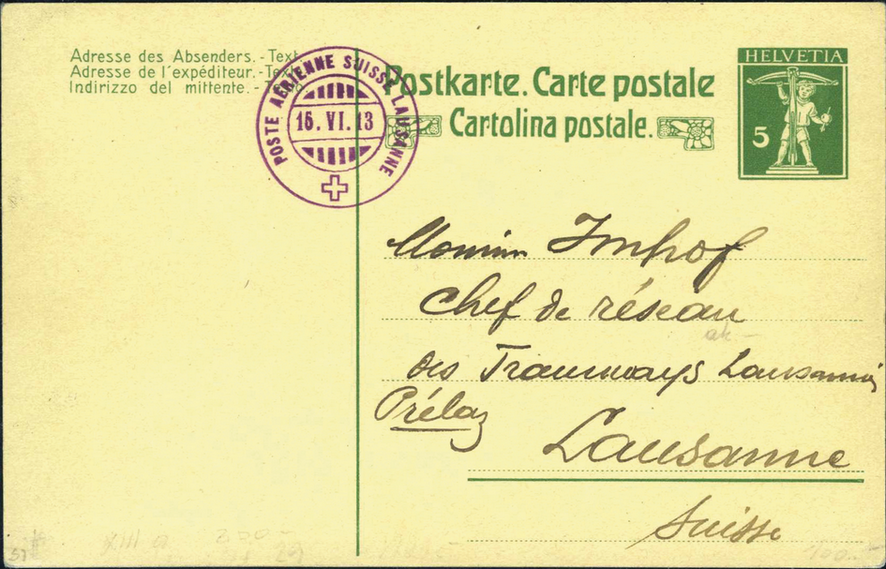 Adresse des Absenders. - Text
Adresse de l'expéditeur. - Tex
Indirizzo del mittente. -
POSTE AÉRIENNE SUISSE LAUSANNE
16. VI. 13
Postkarte. Carte postale
Cartolina postale.
HELVETIA
5
Monsieur Imhof
Chef de réseau
ak -
des Tramways Lausannois
Prélaz
Lausanne
Suisse
XIII a
300 -
29
100.-